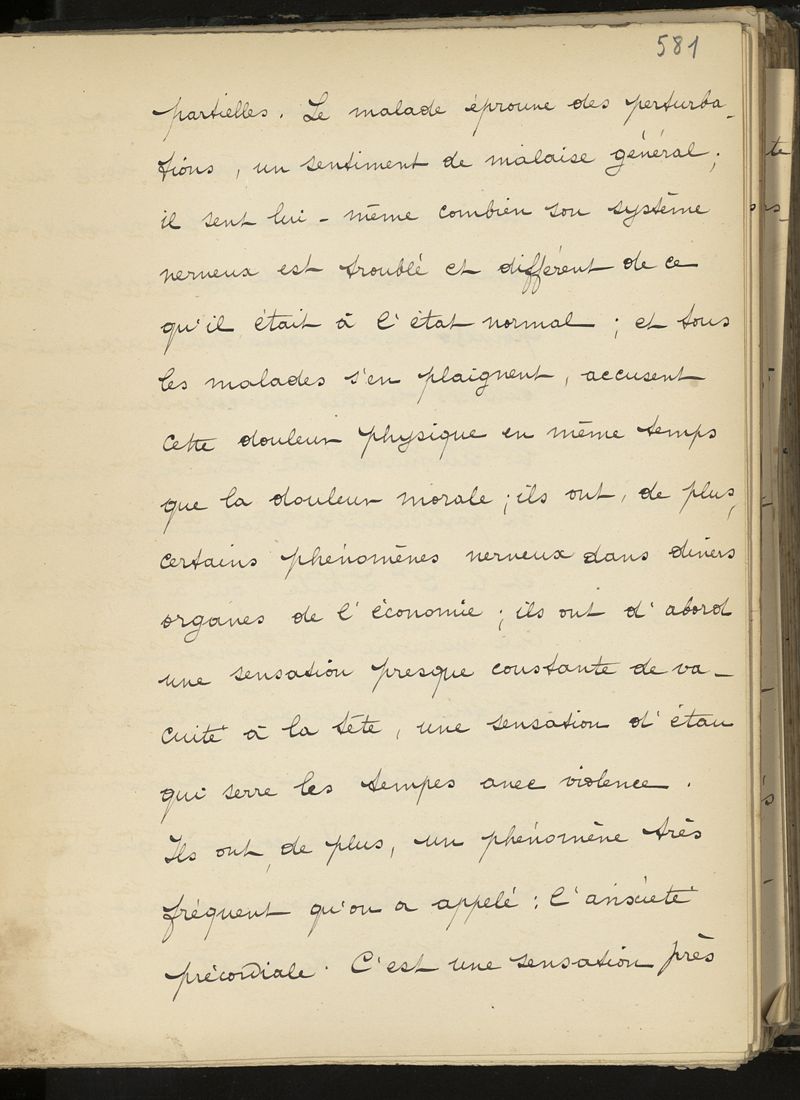 581
partielles. Le malade éprouve des perturba-
tions, un sentiment de malaise général;
il sent lui-même combien son système
nerveux est troublé et différent de ce
qu'il était à l'état normal; et tous
les malades s'en plaignent, accusent
cette douleur physique en même temps
que la douleur morale; ils ont, de plus,
certains phénomènes nerveux dans divers
organes de l'économie; ils ont d'abord
une sensation presque constante de va-
cuité à la tête, une sensation d'étau
qui serre les tempes avec violence.
Ils ont, de plus, un phénomène très
fréquent qu'on a appelé: l'anxiété
précordiale. C'est une sensation près
te